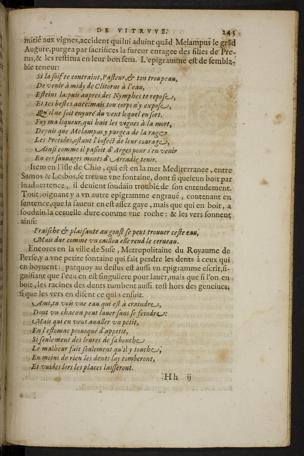 DE VITRVVE. 245
mitié aux vignes, accident qui lui aduint quād Melampus le grād
Augure, purgea par sacrifices la fureur enragee des filles de Pre-
tus, & les restitua en leur bon sens. L'epigramme est de sembla-
ble teneur:
Si la soif te contraint, Pasteur, & ton troupeau,
De venir à midy de Clitorus à l'eau,
Esteins la, puis aupres des Nymphes te repose,
Et tes bestes
Qu'il ne soit enyuré du vent lequel en sort.
Fuy ma liqueur, qui hait les vignes à la mort,
Depuis que Melampus y purgea de la rage
Les Pretides, ostant l'infect de leur courage,
Ainsi comme il passoit d'Arges pour s'en venir
En ces sauuages monts d'Arcadie tenir.
Item en l'Isle de Chio, qui est en la mer Mediterranee, entre
Samos & Lesbos, se treuue vne fontaine, dont si quelcun boit par
inaduertence, il deuient soudain troublé de son entendement.
Tout-joignant y a vn autre epigramme engraué, contenant en
sentence, que la saueur en est assez gaye, mais que qui en boit, a
soudain la ceruelle dure comme vne roche: & les vers sonnent
ainsi:
Fraische & plaisante au goust se peut trouuer ceste eau,
Mais dur comme vn caillou elle rend le cerueau.
Encores en la ville de Suse, Metropolitaine du Royaume de
Perse, y a vne petite fontaine qui fait perdre les dents à ceux qui
en boyuent: parquoy au dessus est aussi vn epigramme escrit, si-
gnifiant que l'eau en est singuliere pour lauer, mais que si l'on en
boit, les racines des dents tumbent aussi tost hors des genciues,
si que les vers en disent ce qui s'ensuit.
Amy, tu vois vne eau qui est à craindre,
Dont vn chacun peut lauer sans se feindre:
Mais qui en veut aualler vn petit,
En l'estomac prouoqué d'appetit,
Si seulement des leures de sa bouche
Le malheur fait seulement qu'il y touche,
En moins de rien les dents luy tomberont,
Et vuides lors les places laisseront.
Hh ij